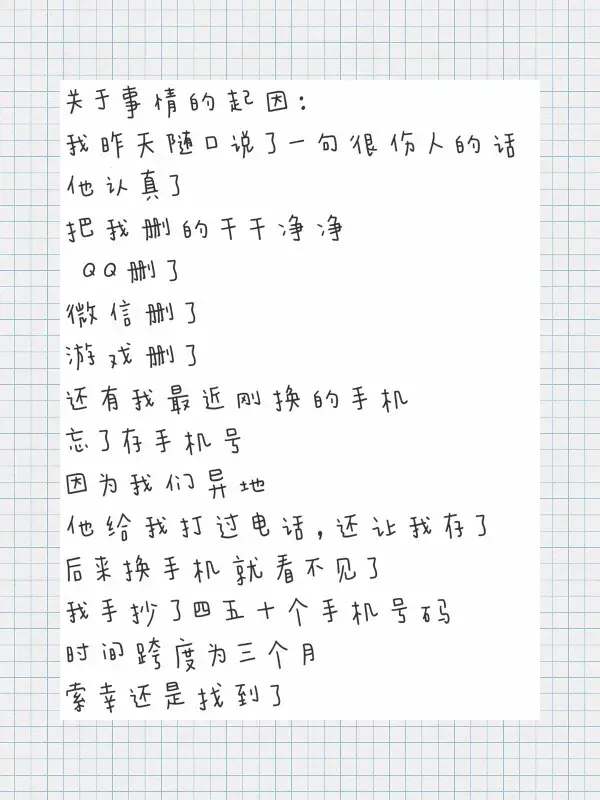 关于事情的起因：
我昨天随口说了一句很伤人的话
他认真了
把我删的干干净净
QQ删了
微信删了
游戏删了
还有我最近刚换的手机
忘了存手机号
因为我们异地
他给我打过电话，还让我存了
后来换手机就看不见了
我手抄了四五十个手机号码
时间跨度为三个月
索幸还是找到了